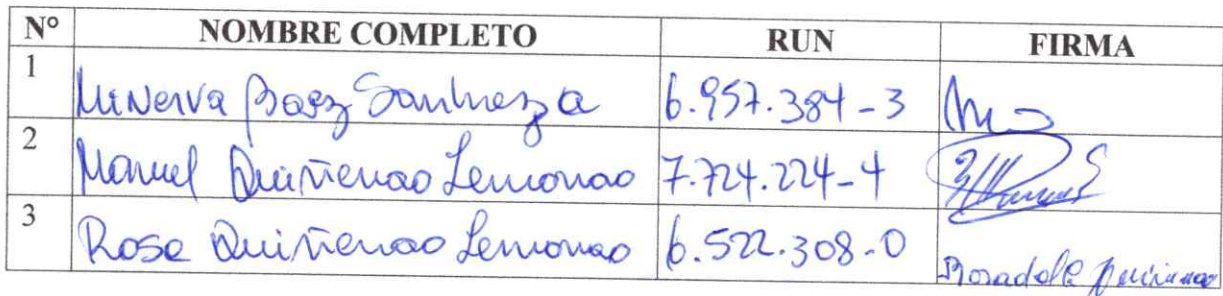 N° NOMBRE COMPLETO RUN FIRMA
1 Minerva Baez Sanhueza 6.957.384-3
2 Manuel Quiñenao Lemonao 7.724.224-4
3 Rosa Quiñenao Lemonao 6.522.308-0